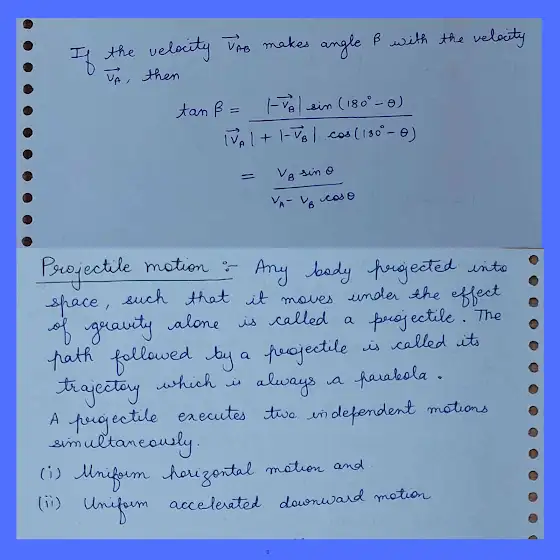 If the velocity →V_AB makes angle β with the velocity
→V_A, then
tan β = |-→V_B| sin (180° - θ) / |→V_A| + |-→V_B| cos (180° - θ)
= V_B sin θ / V_A - V_B cos θ
Projectile motion :- Any body projected into
space, such that it moves under the effect
of gravity alone is called a projectile. The
path followed by a projectile is called its
trajectory which is always a parabola.
A projectile executes two independent motions
simultaneously.
(i) Uniform horizontal motion and
(ii) Uniform accelerated downward motion